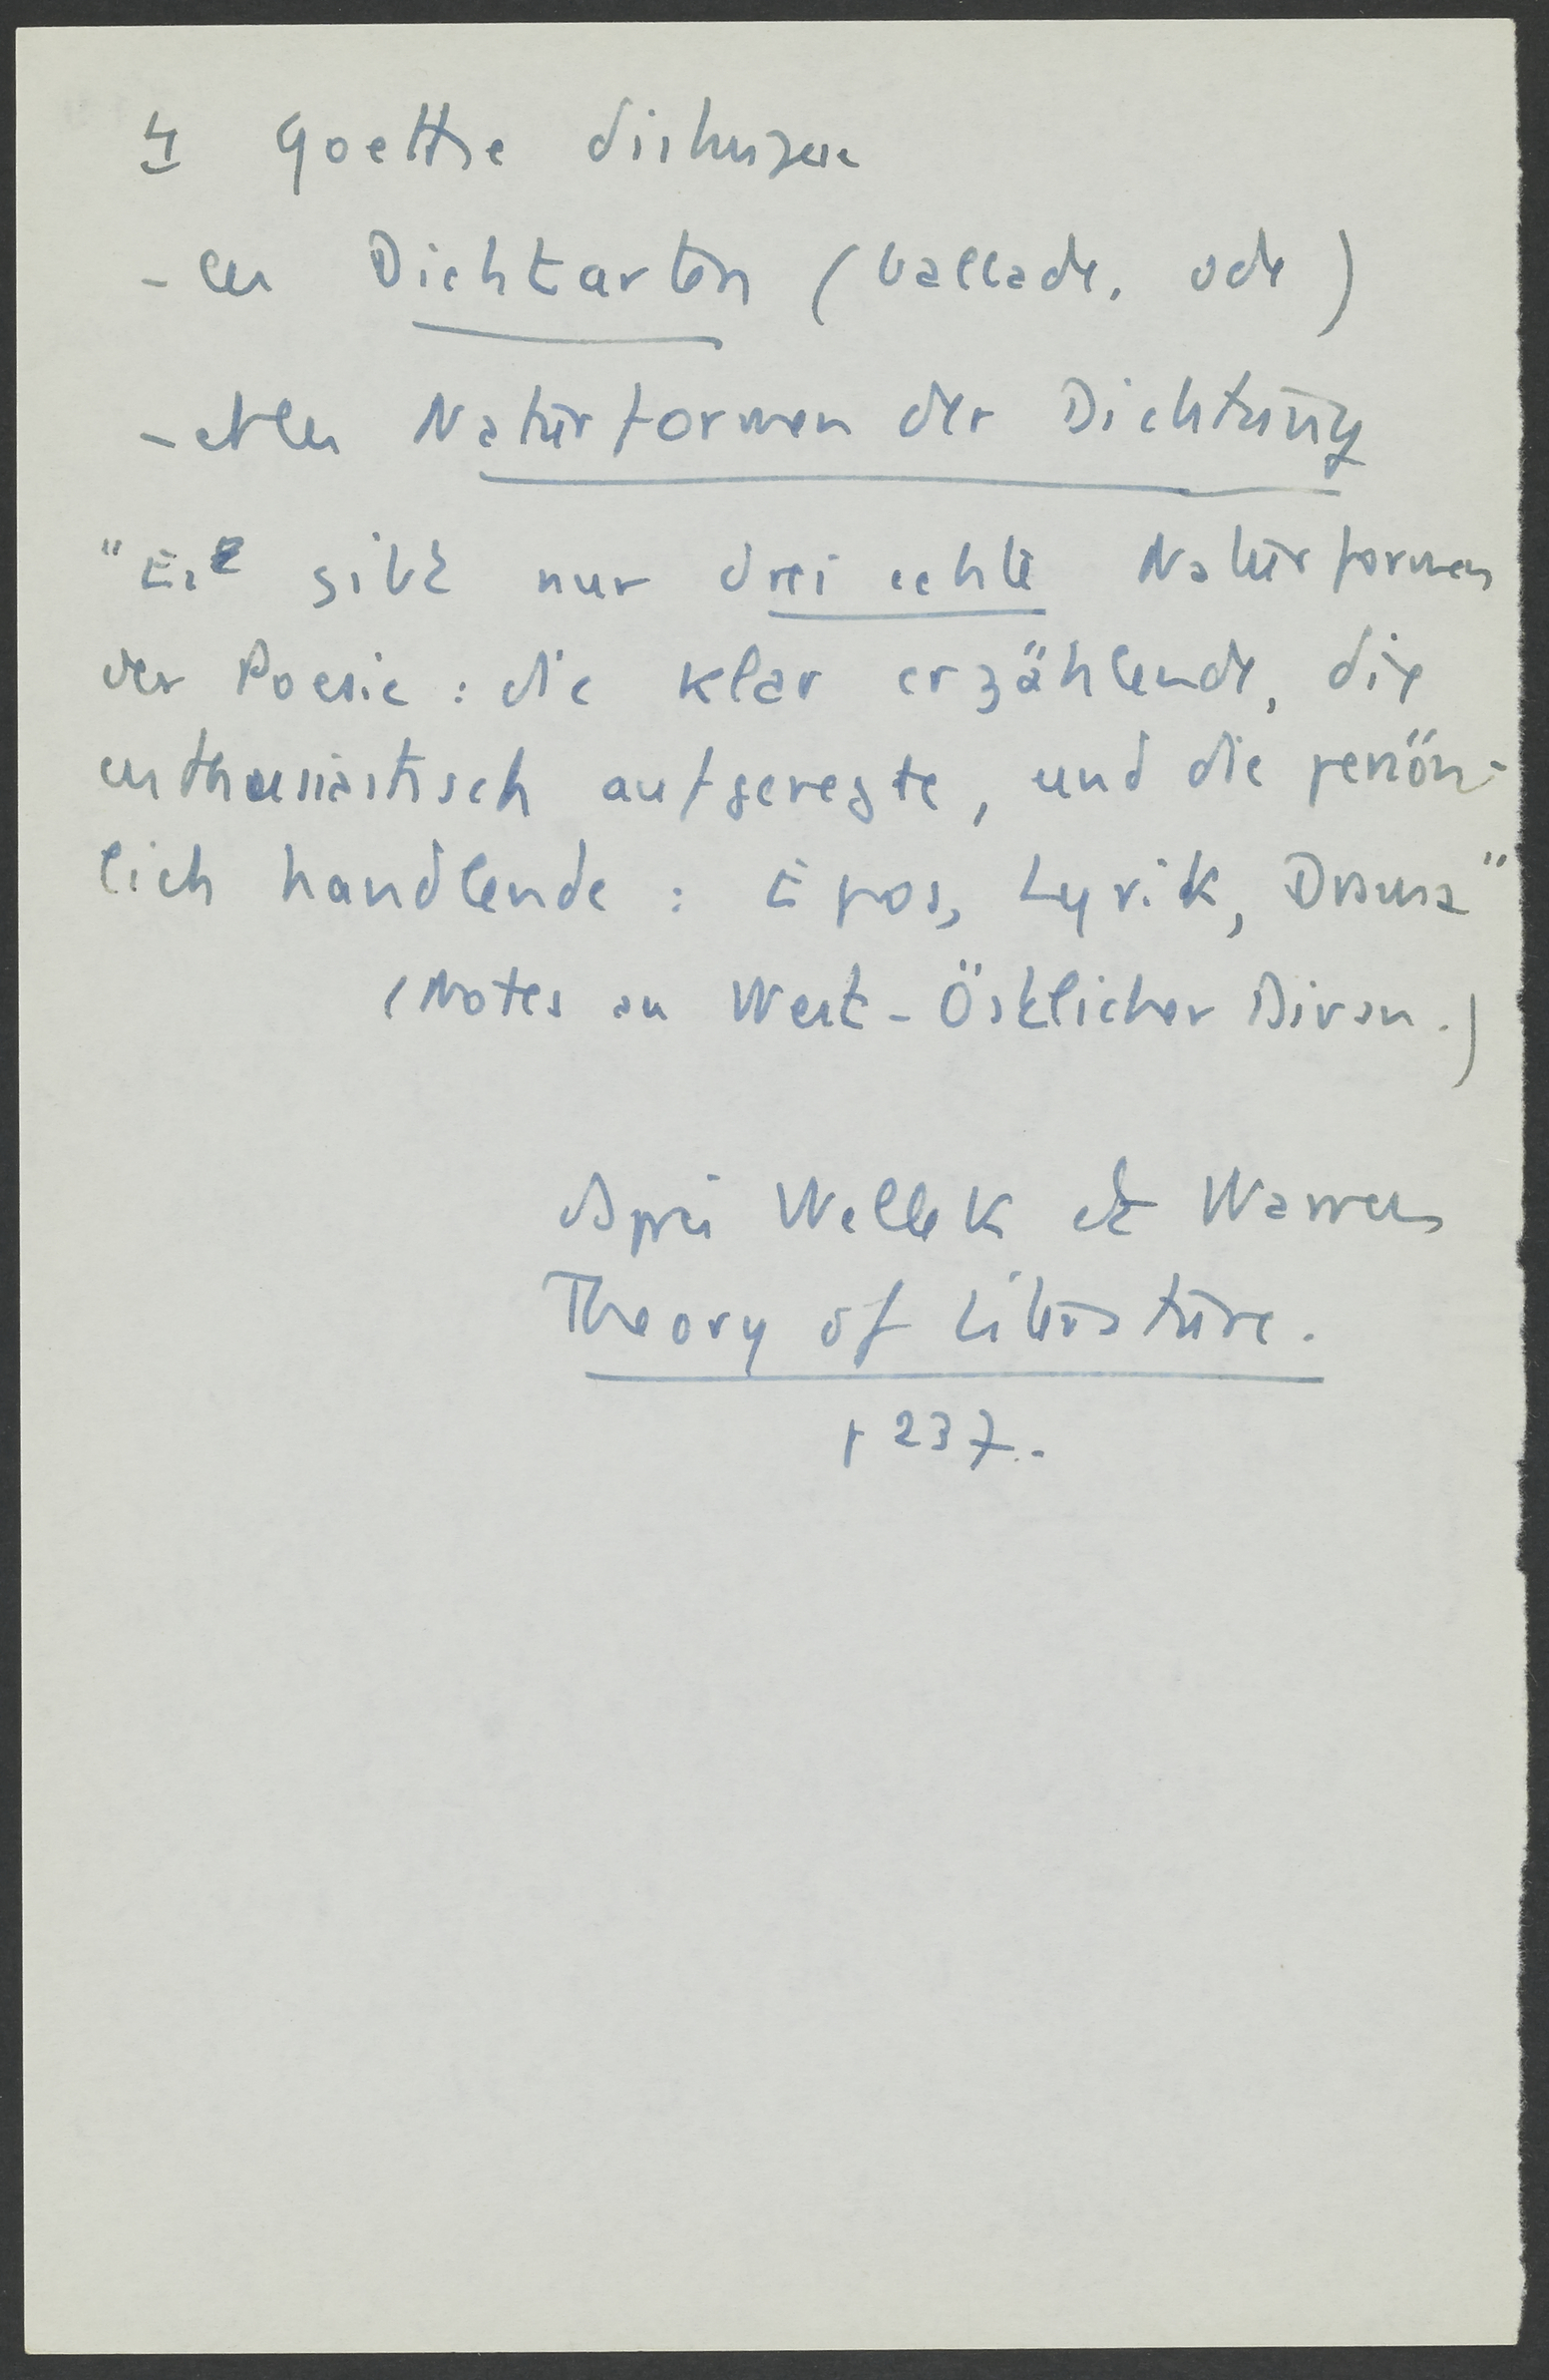 4 Goethe distingue
- les Dichtarten (ballade, ode)
- et les Naturformen der Dichtung
"Es gibt nur drei echte Naturformen
der Poesie : die klar erzählende, die
enthusiastisch aufgeregte, und die persön-
lich handlende : Epos, Lyrik, Drama"
(Notes au West-Östlicher Divan.)
Après Wellek et Warren
Theory of Literature.
p 237.